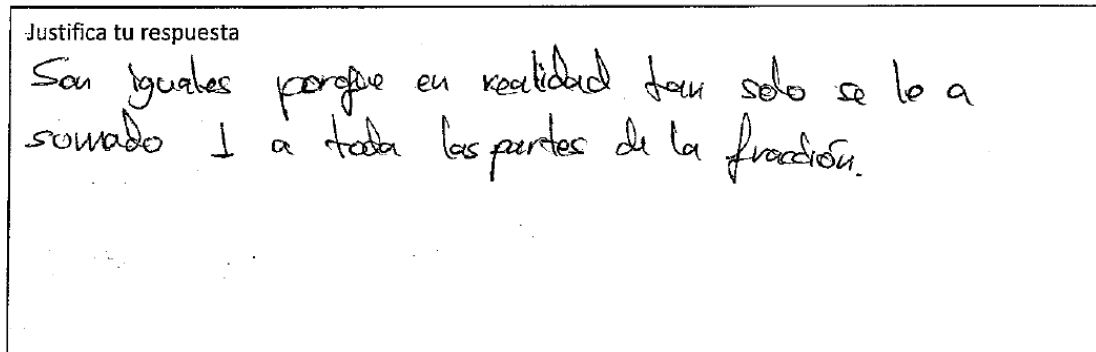 Justifica tu respuesta
Son iguales porque en realidad tan solo se le a
somado 1 a toda las partes de la fracción.